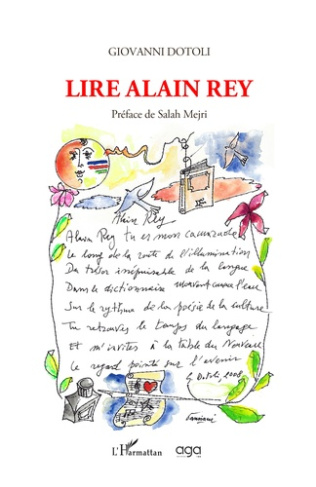 GIOVANNI DOTOLI
LIRE ALAIN REY
Préface de Salah Mejri
Alain Rey
Alain Rey tu es mon camarade
Le long de la route de l'illumination
Du trésor inépuisable de la langue
Dans le dictionnaire mouvant comme l'eau
Sur le rythme de la poésie de la culture
Tu retrouves le temps du langage
Et m'invites à la table du Nouveau
Le regard pointé sur l'avenir
G Dotoli 2008
L'Harmattan
aga